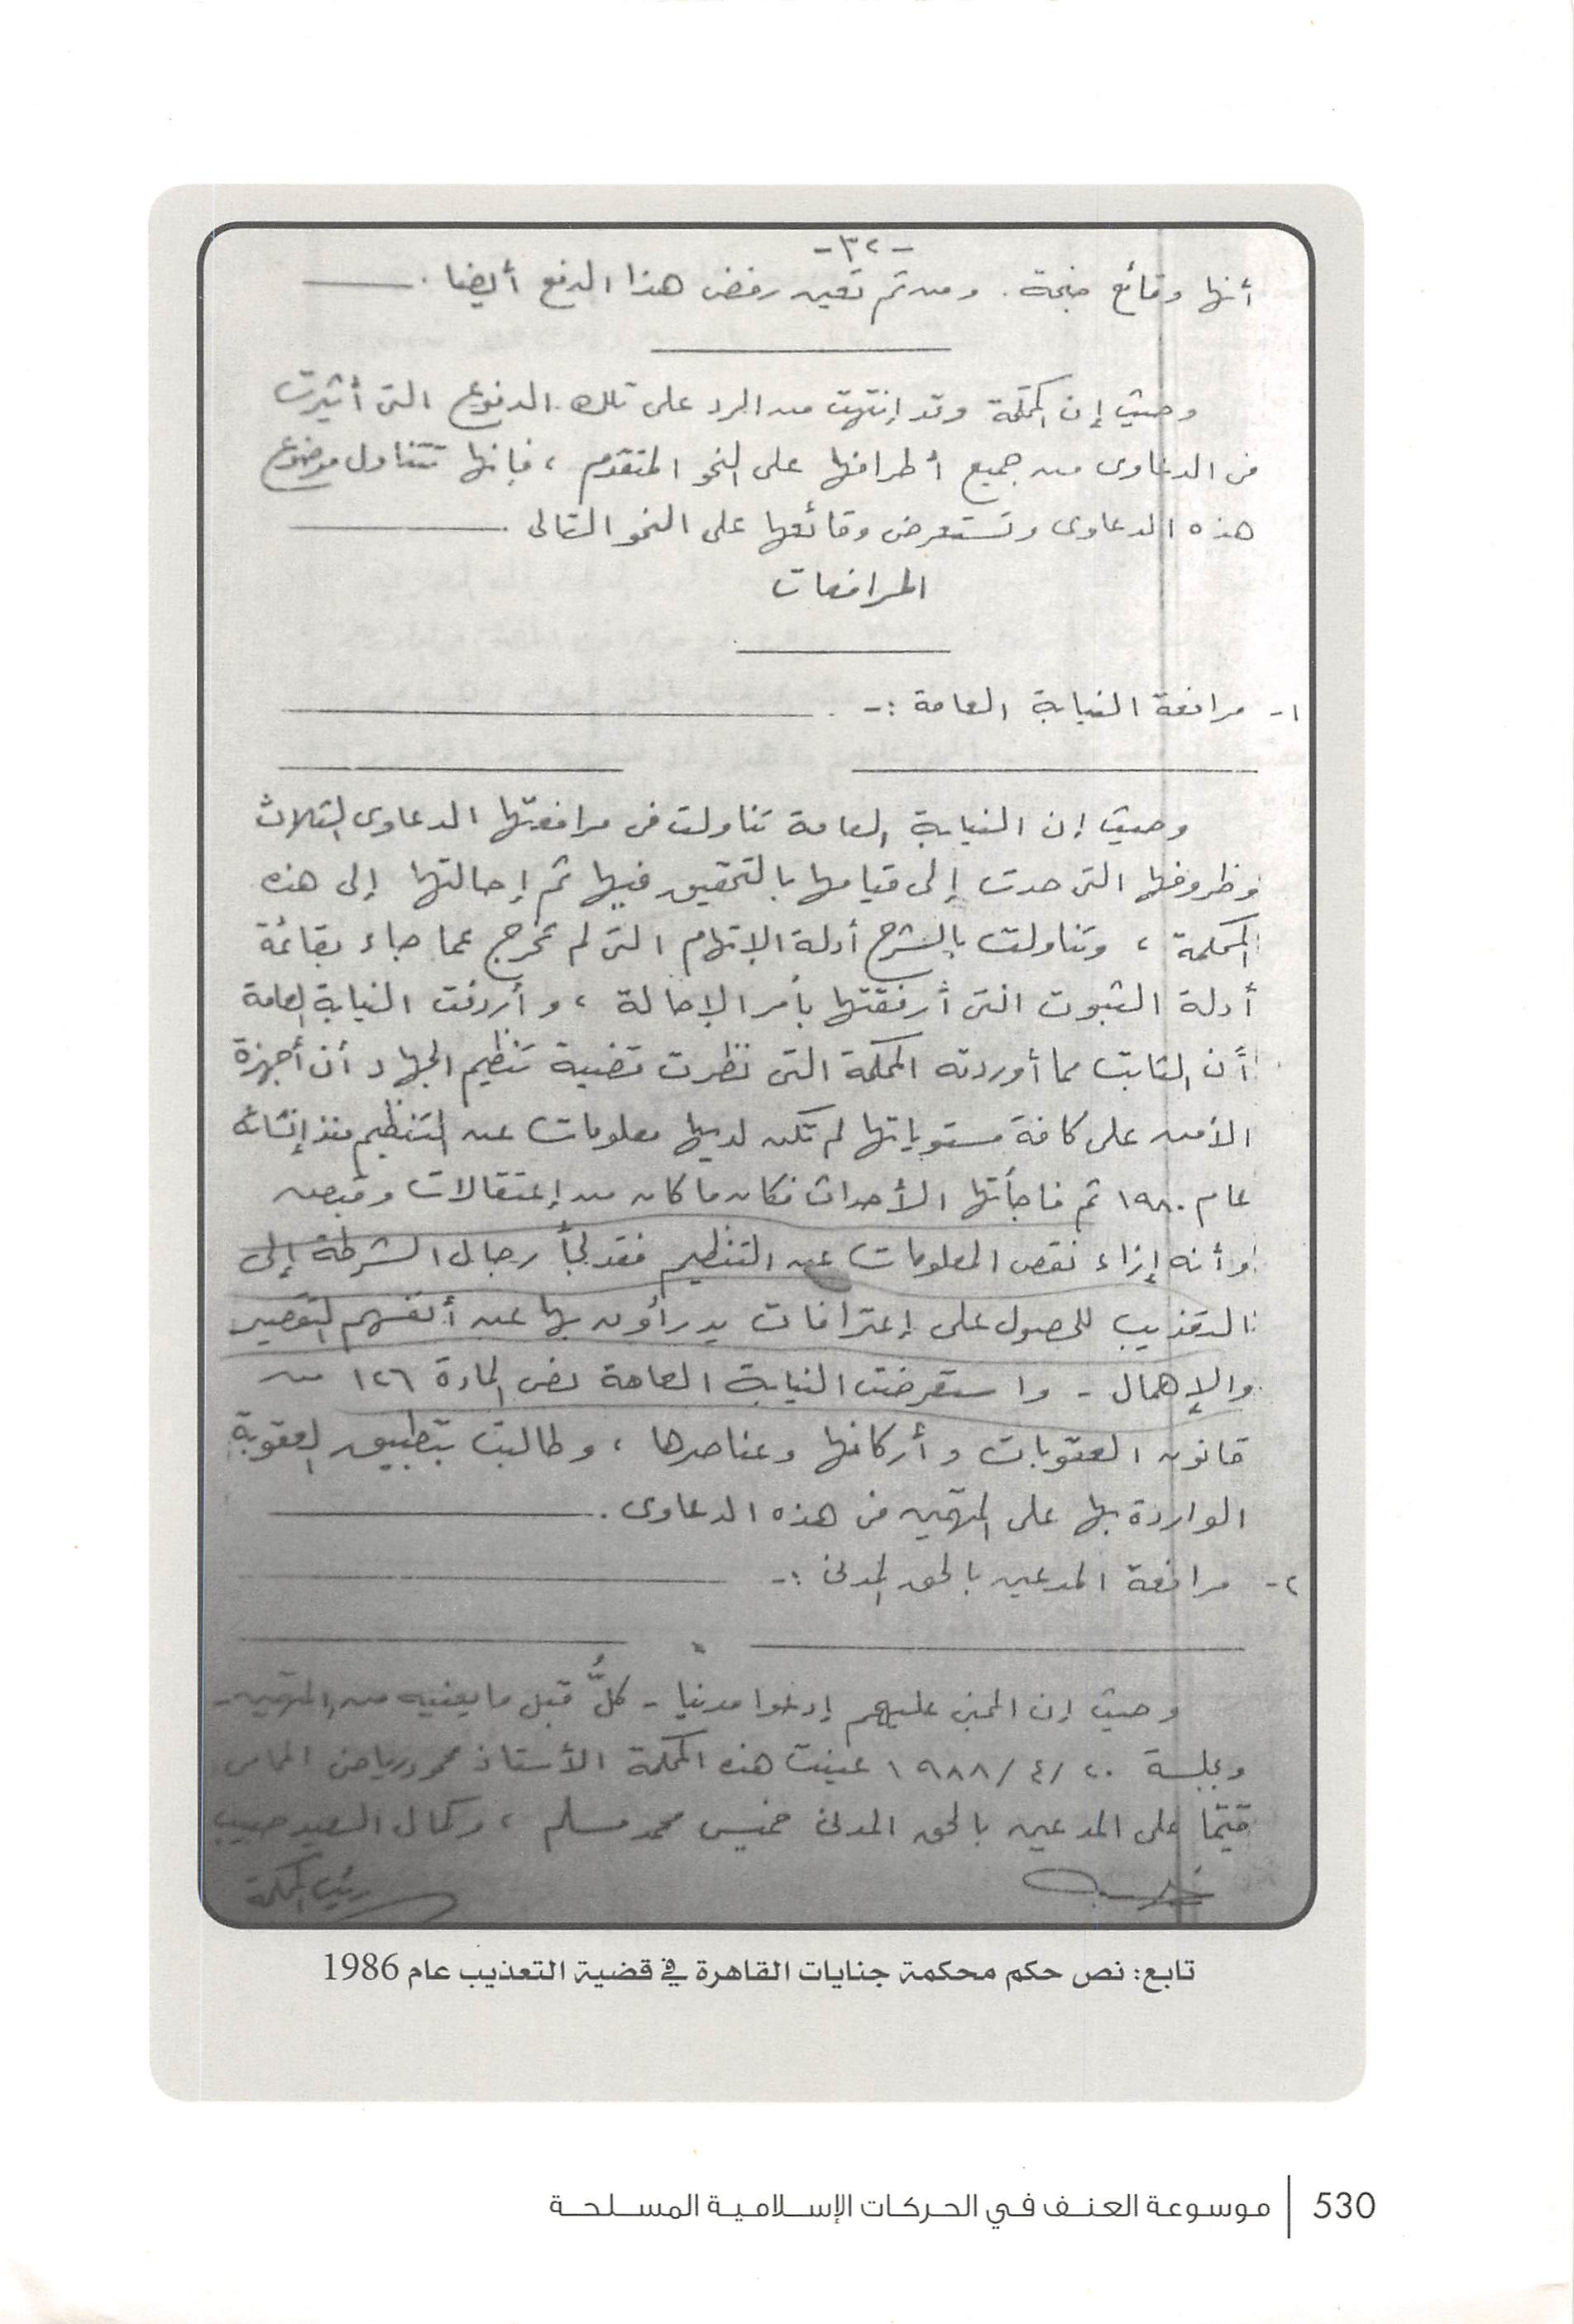 -٣٢-
أنها وقائع جنحة . ومن ثم تعين رفض هذا الدفع أيضا .
وحيث إن المحكمة وقد إنتهت من الرد على تلك الدفوع التى أثيرت
فى الدعاوى من جميع أطرافها على النحو المتقدم ، فإنها تتناول موضوع
هذه الدعاوى وتستعرض وقائعها على النحو التالى
المرافعات
١- مرافعة النيابة العامة :-
وحيث إن النيابة العامة تناولت فى مرافعتها الدعاوى الثلاث
وظروفها التى حدت إلى قيامها بالتحقيق فيها ثم إحالتها إلى هذه
المحكمة ، وتناولت بالشرح أدلة الإتهام التى لم تخرج عما جاء بقائمة
أدلة الثبوت التى أرفقتها بأمر الإحالة ، وأردفت النيابة العامة
أن الثابت مما أوردته المحكمة التى نظرت قضية تنظيم الجهاد أن أجهزة
الأمن على كافة مستوياتها لم تكن لديها معلومات عن التنظيم منذ إنشائه
عام ١٩٨٠ ثم فاجأتها الأحداث فكان ما كان من إعتقالات وقبض
وأنه إزاء نقص المعلومات عن التنظيم فقد لجأ رجال الشرطة إلى
التعذيب للحصول على إعترافات يدرأون بها عن أنفسهم التقصير
والإهمال - واستعرضت النيابة العامة نص المادة ١٢٦ من
قانون العقوبات وأركانها وعناصرها ، وطالبت بتطبيق العقوبة
الواردة بها على المتهمين فى هذه الدعاوى .
٢- مرافعة المدعين بالحق المدنى :-
وحيث إن المجنى عليهم إدعوا مدنيا - كلٌّ قبل ما يعنيه من المتهمين -
وبجلسة ٢٠/٤/١٩٨٨ عينت هذه المحكمة الأستاذ محمود رياض المحامى
قيمًا على المدعين بالحق المدنى خميس محمد مسلم ، وكمال السعيد حبيب
رئيس المحكمة
تابع: نص حكم محكمة جنايات القاهرة في قضية التعذيب عام 1986
530 | موسوعة العنف في الحركات الإسلامية المسلحة